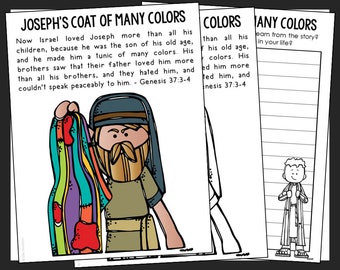 JOSEPH'S COAT OF MANY COLORS
Now Israel loved Joseph more than all his
children, because he was the son of his old age,
and he made him a tunic of many colors. His
brothers saw that their father loved him more
than all his brothers, and they hated him, and
couldn't speak peaceably to him. - Genesis 37:3-4
COLORS
more than all his
of his old age,
colors. His
him more
him, and
37:3-4
MANY COLORS
earn from the story?
in your life?